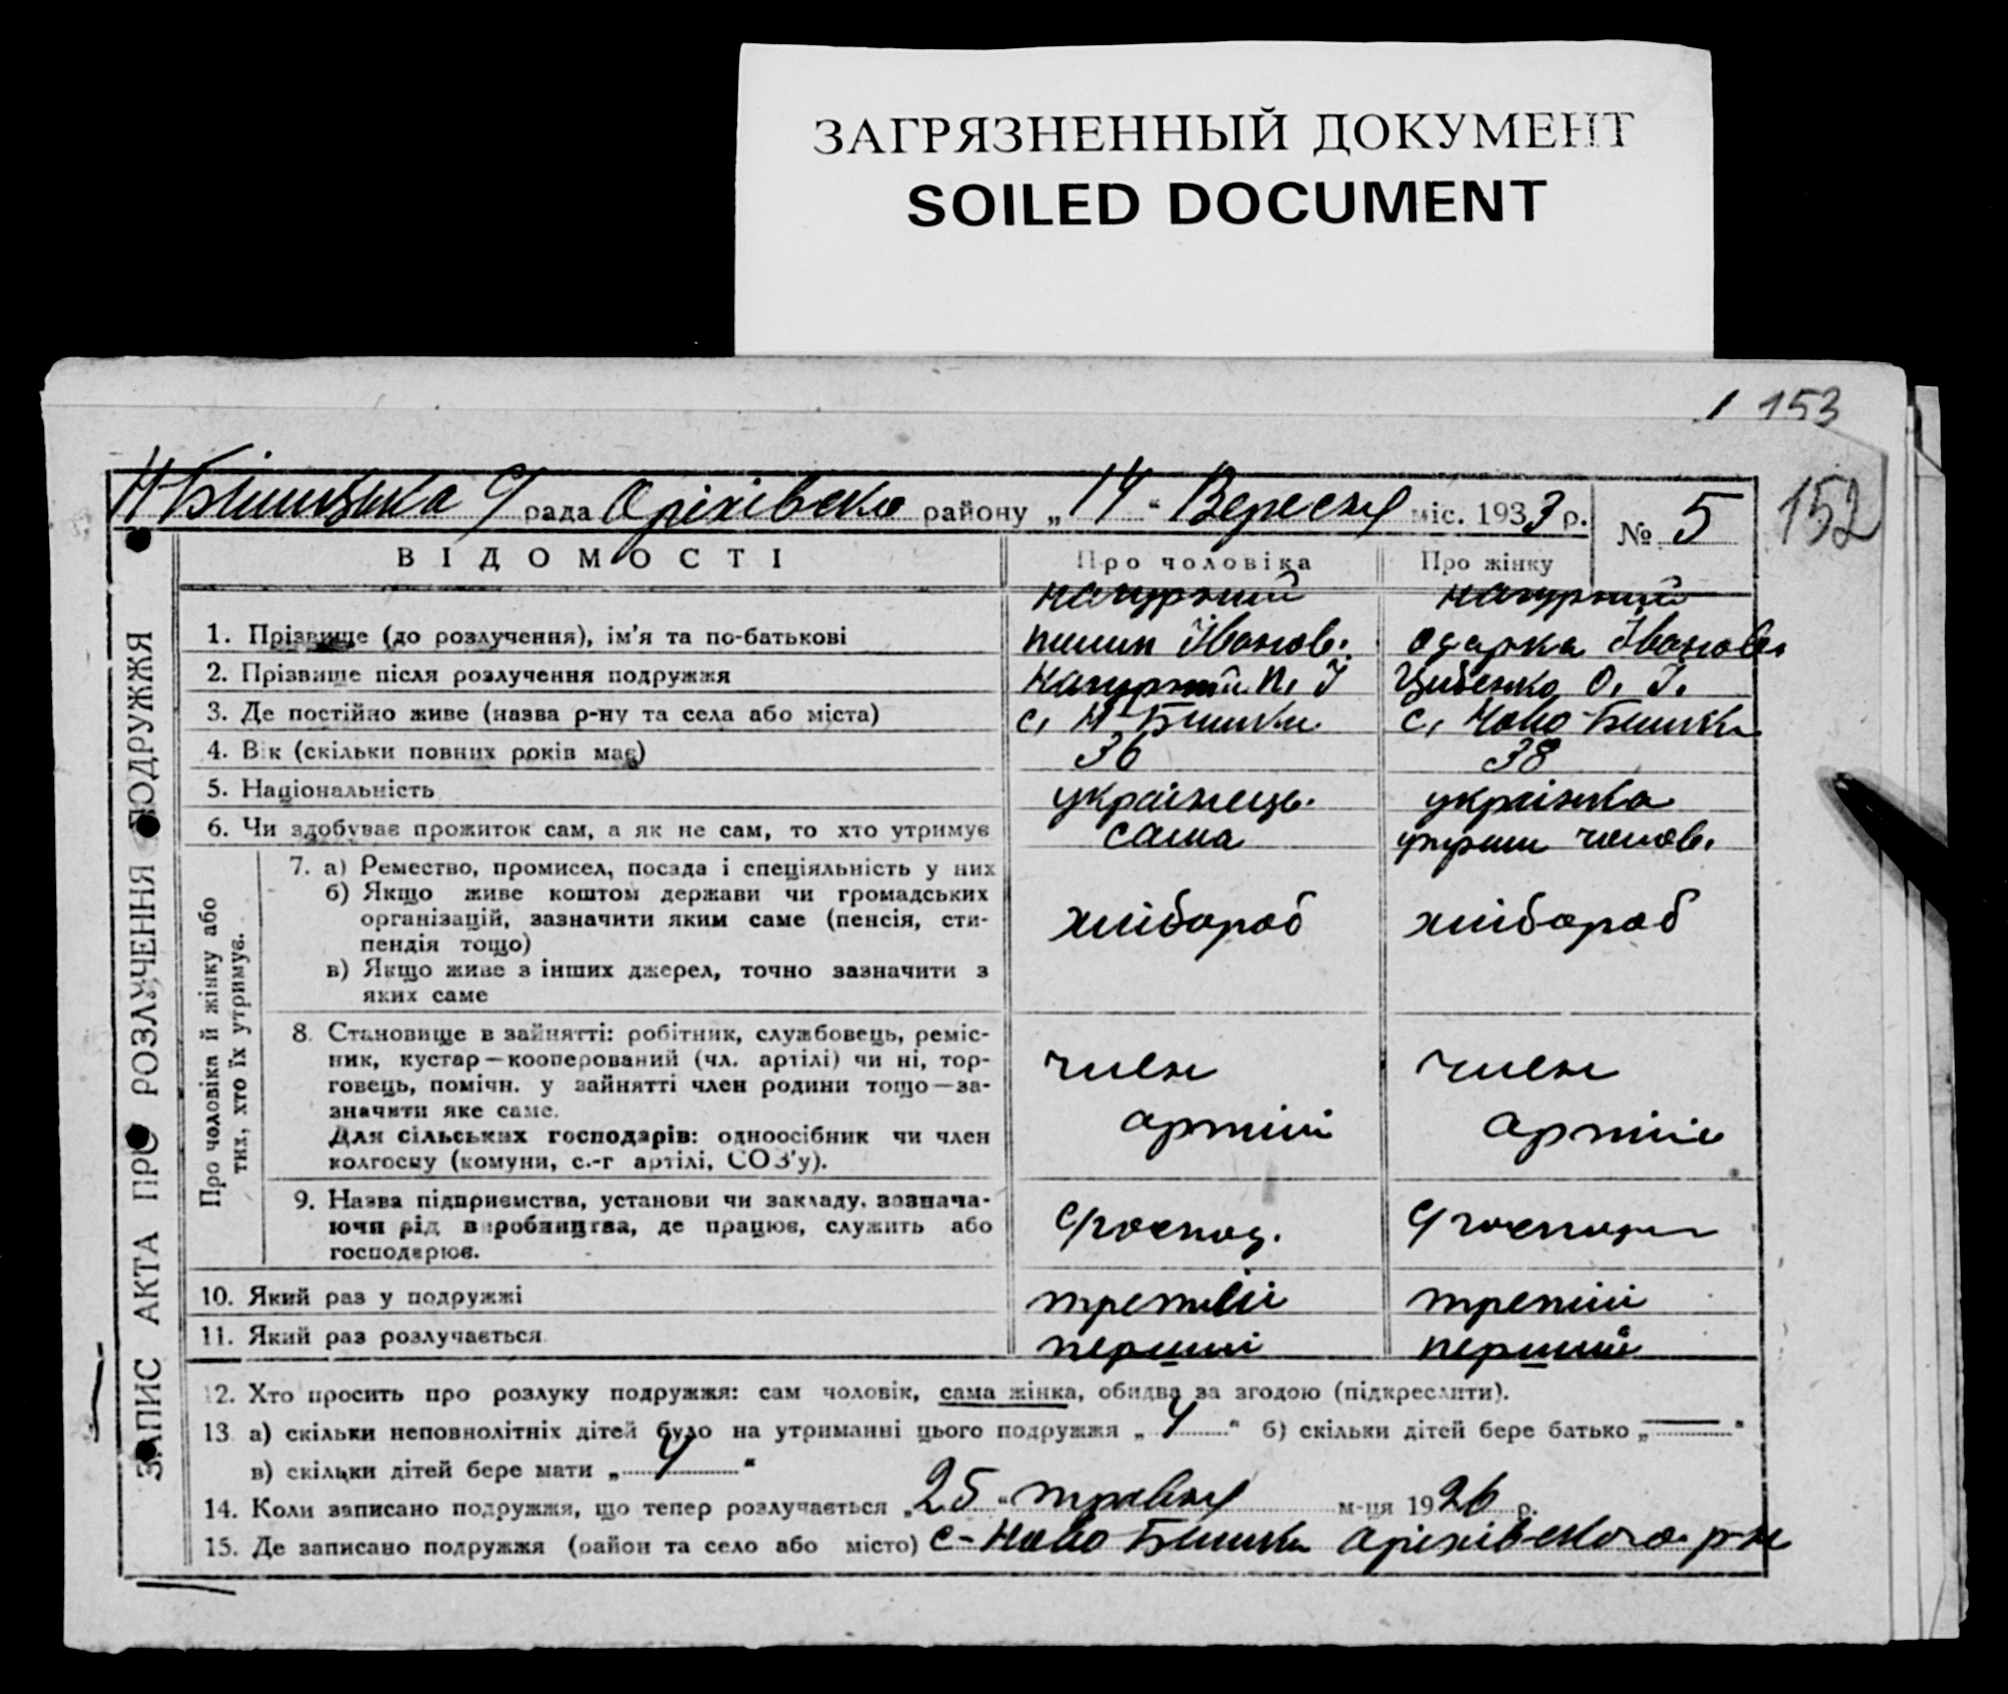 ЗАГРЯЗНЕННЫЙ ДОКУМЕНТ
SOILED DOCUMENT
153
152
рада Оріхівсько району „14“ Вересня міс. 1933 р. № 5
ЗАПИС АКТА ПРО РОЗЛУЧЕННЯ ПОДРУЖЖЯ
ВІДОМОСТІ Про чоловіка Про жінку
1. Прізвище (до розлучення), ім'я та по-батькові Пилип Іванов. Одарка Іванов.
2. Прізвище після розлучення подружжя П. І Цибенко О. І.
3. Де постійно живе (назва р-ну та села або міста) с. Н- с. Ново-
4. Вік (скільки повних років має) 36 38
5. Національність українець. українка
6. Чи здобуває прожиток сам, а як не сам, то хто утримує сама утрим чолов.
Про чоловіка й жінку або
тих, хто їх утримує.
7. а) Ремество, промисел, посада і спеціяльність у них
б) Якщо живе коштом держави чи громадських
організацій, зазначити яким саме (пенсія, сти-
пендія тощо) хлібороб хлібороб
в) Якщо живе з інших джерел, точно зазначити з
яких саме
8. Становище в зайнятті: робітник, службовець, реміс-
ник, кустар—кооперований (чл. артілі) чи ні, тор- член член
говець, помічн. у зайнятті член родини тощо—за-
значити яке саме. артілі артілі
Для сільських господарів: одноосібник чи член
колгоспу (комуни, с.-г артілі, СОЗ'у).
9. Назва підприємства, установи чи закладу, зазнача-
ючи рід виробництва, де працює, служить або
господарює.
10. Який раз у подружжі третій третій
11. Який раз розлучається перший перший
12. Хто просить про розлуку подружжя: сам чоловік, сама жінка, обидва за згодою (підкреслити).
13 а) скільки неповнолітніх дітей було на утриманні цього подружжя „4“ б) скільки дітей бере батько „—“
в) скільки дітей бере мати „4“
14. Коли записано подружжя, що тепер розлучається „25“ травня м-ця 1926 р.
15. Де записано подружжя (район та село або місто) с-Ново Оріхівського р-н